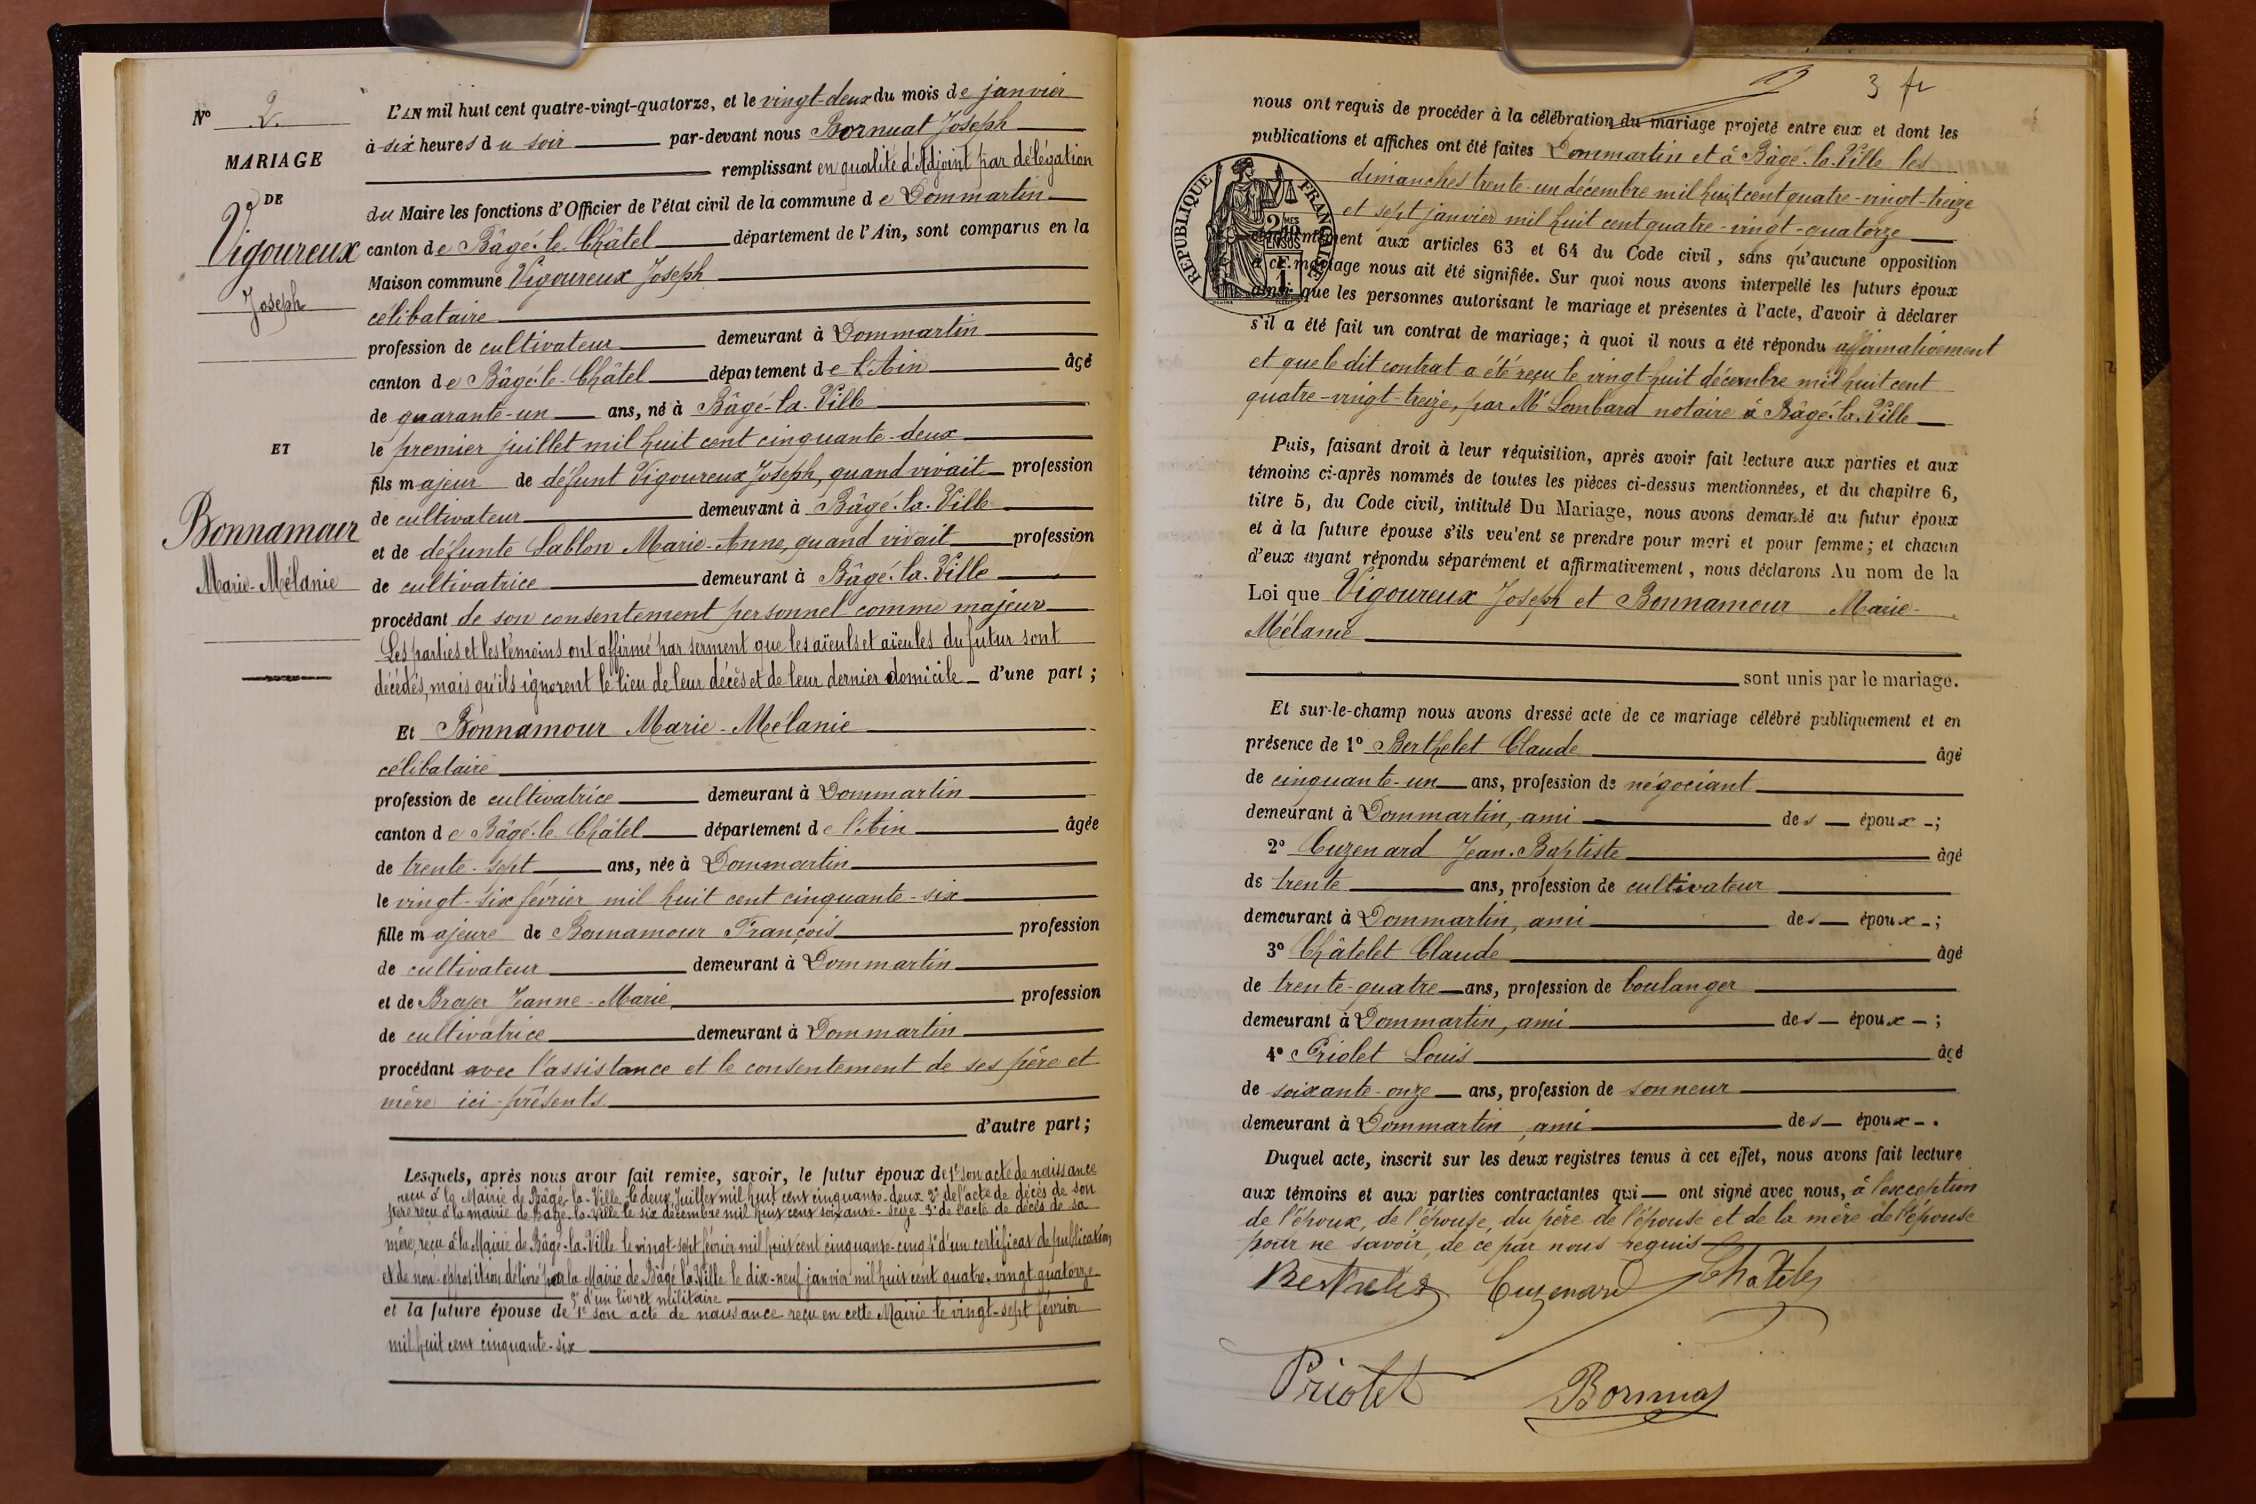 N° 2
MARIAGE
DE
Vigoureux
Joseph
ET
Bonnamour
Marie-Mélanie
L'AN mil huit cent quatre-vingt-quatorze, et le vingt-deux du mois de janvier
à six heures du soir par-devant nous Bornuat Joseph
remplissant en qualité d'Adjoint par délégation
du Maire les fonctions d'Officier de l'état civil de la commune de Dommartin
canton de Bâgé-le-Châtel département de l'Ain, sont comparus en la
Maison commune Vigoureux Joseph
célibataire
profession de cultivateur demeurant à Dommartin
canton de Bâgé-le-Châtel département de l'Ain âgé
de quarante-un ans, né à Bâgé-la-Ville
le premier juillet mil huit cent cinquante-deux
fils majeur de défunt Vigoureux Joseph, quand vivait profession
de cultivateur demeurant à Bâgé-la-Ville
et de défunte Sablon Marie-Anne, quand vivait profession
de cultivatrice demeurant à Bâgé-la-Ville
procédant de son consentement personnel comme majeur
Les parties et les témoins ont affirmé par serment que les aïeuls et aïeules du futur sont
décédés, mais qu'ils ignorent le lieu de leur décès et de leur dernier domicile d'une part ;
Et Bonnamour Marie-Mélanie
célibataire
profession de cultivatrice demeurant à Dommartin
canton de Bâgé-le-Châtel département de l'Ain âgée
de trente-sept ans, née à Dommartin
le vingt-six février mil huit cent cinquante-six
fille majeure de Bonnamour François profession
de cultivateur demeurant à Dommartin
et de Broyer Jeanne-Marie profession
de cultivatrice demeurant à Dommartin
procédant avec l'assistance et le consentement de ses père et
mère ici présents
d'autre part ;
Lesquels, après nous avoir fait remise, savoir, le futur époux de 1° son acte de naissance
reçu à la Mairie de Bâgé-la-Ville le deux Juillet mil huit cent cinquante-deux 2° de l'acte de décès de son
père reçu à la mairie de Bâgé-la-Ville le six décembre mil huit cent soixante-seize 3° de l'acte de décès de sa
mère, reçu à la Mairie de Bâgé-la-Ville le vingt-sept février mil huit cent cinquante-cinq 4° d'un certificat de publication
et de non-opposition délivré par la Mairie de Bâgé la Ville le dix-neuf janvier mil huit cent quatre-vingt quatorze
5° d'un livret militaire
et la future épouse de 1° son acte de naissance reçu en cette Mairie le vingt-sept février
mil huit cent cinquante-six
3 fr
nous ont requis de procéder à la célébration du mariage projeté entre eux et dont les
publications et affiches ont été faites Dommartin et à Bâgé-la-Ville les
dimanches trente-un décembre mil huit cent quatre-vingt-treize
et sept janvier mil huit cent quatre-vingt-quatorze
RÉPUBLIQUE FRANÇAISE
conformément aux articles 63 et 64 du Code civil, sans qu'aucune opposition
à ce mariage nous ait été signifiée. Sur quoi nous avons interpellé les futurs époux
ainsi que les personnes autorisant le mariage et présentes à l'acte, d'avoir à déclarer
s'il a été fait un contrat de mariage ; à quoi il nous a été répondu affirmativement
et que le dit contrat a été reçu le vingt-huit décembre mil huit cent
quatre-vingt-treize, par Me Lombard notaire à Bâgé-la-Ville
Puis, faisant droit à leur réquisition, après avoir fait lecture aux parties et aux
témoins ci-après nommés de toutes les pièces ci-dessus mentionnées, et du chapitre 6,
titre 5, du Code civil, intitulé Du Mariage, nous avons demandé au futur époux
et à la future épouse s'ils veulent se prendre pour mari et pour femme ; et chacun
d'eux ayant répondu séparément et affirmativement, nous déclarons Au nom de la
Loi que Vigoureux Joseph et Bonnamour Marie-
Mélanie
sont unis par le mariage.
Et sur-le-champ nous avons dressé acte de ce mariage célébré publiquement et en
présence de 1° Berthelet Claude âgé
de cinquante-un ans, profession de négociant
demeurant à Dommartin, ami des époux ;
2° Cuzenard Jean-Baptiste âgé
de trente ans, profession de cultivateur
demeurant à Dommartin, ami des époux ;
3° Châtelet Claude âgé
de trente-quatre ans, profession de boulanger
demeurant à Dommartin, ami des époux ;
4° Priolet Louis âgé
de soixante-onze ans, profession de sonneur
demeurant à Dommartin, ami des époux.
Duquel acte, inscrit sur les deux registres tenus à cet effet, nous avons fait lecture
aux témoins et aux parties contractantes qui ont signé avec nous, à l'exception
de l'époux, de l'épouse, du père de l'épouse et de la mère de l'épouse
pour ne savoir, de ce par nous requis
Berthelet Cuzenard Chatelet
Priolet Bornuat